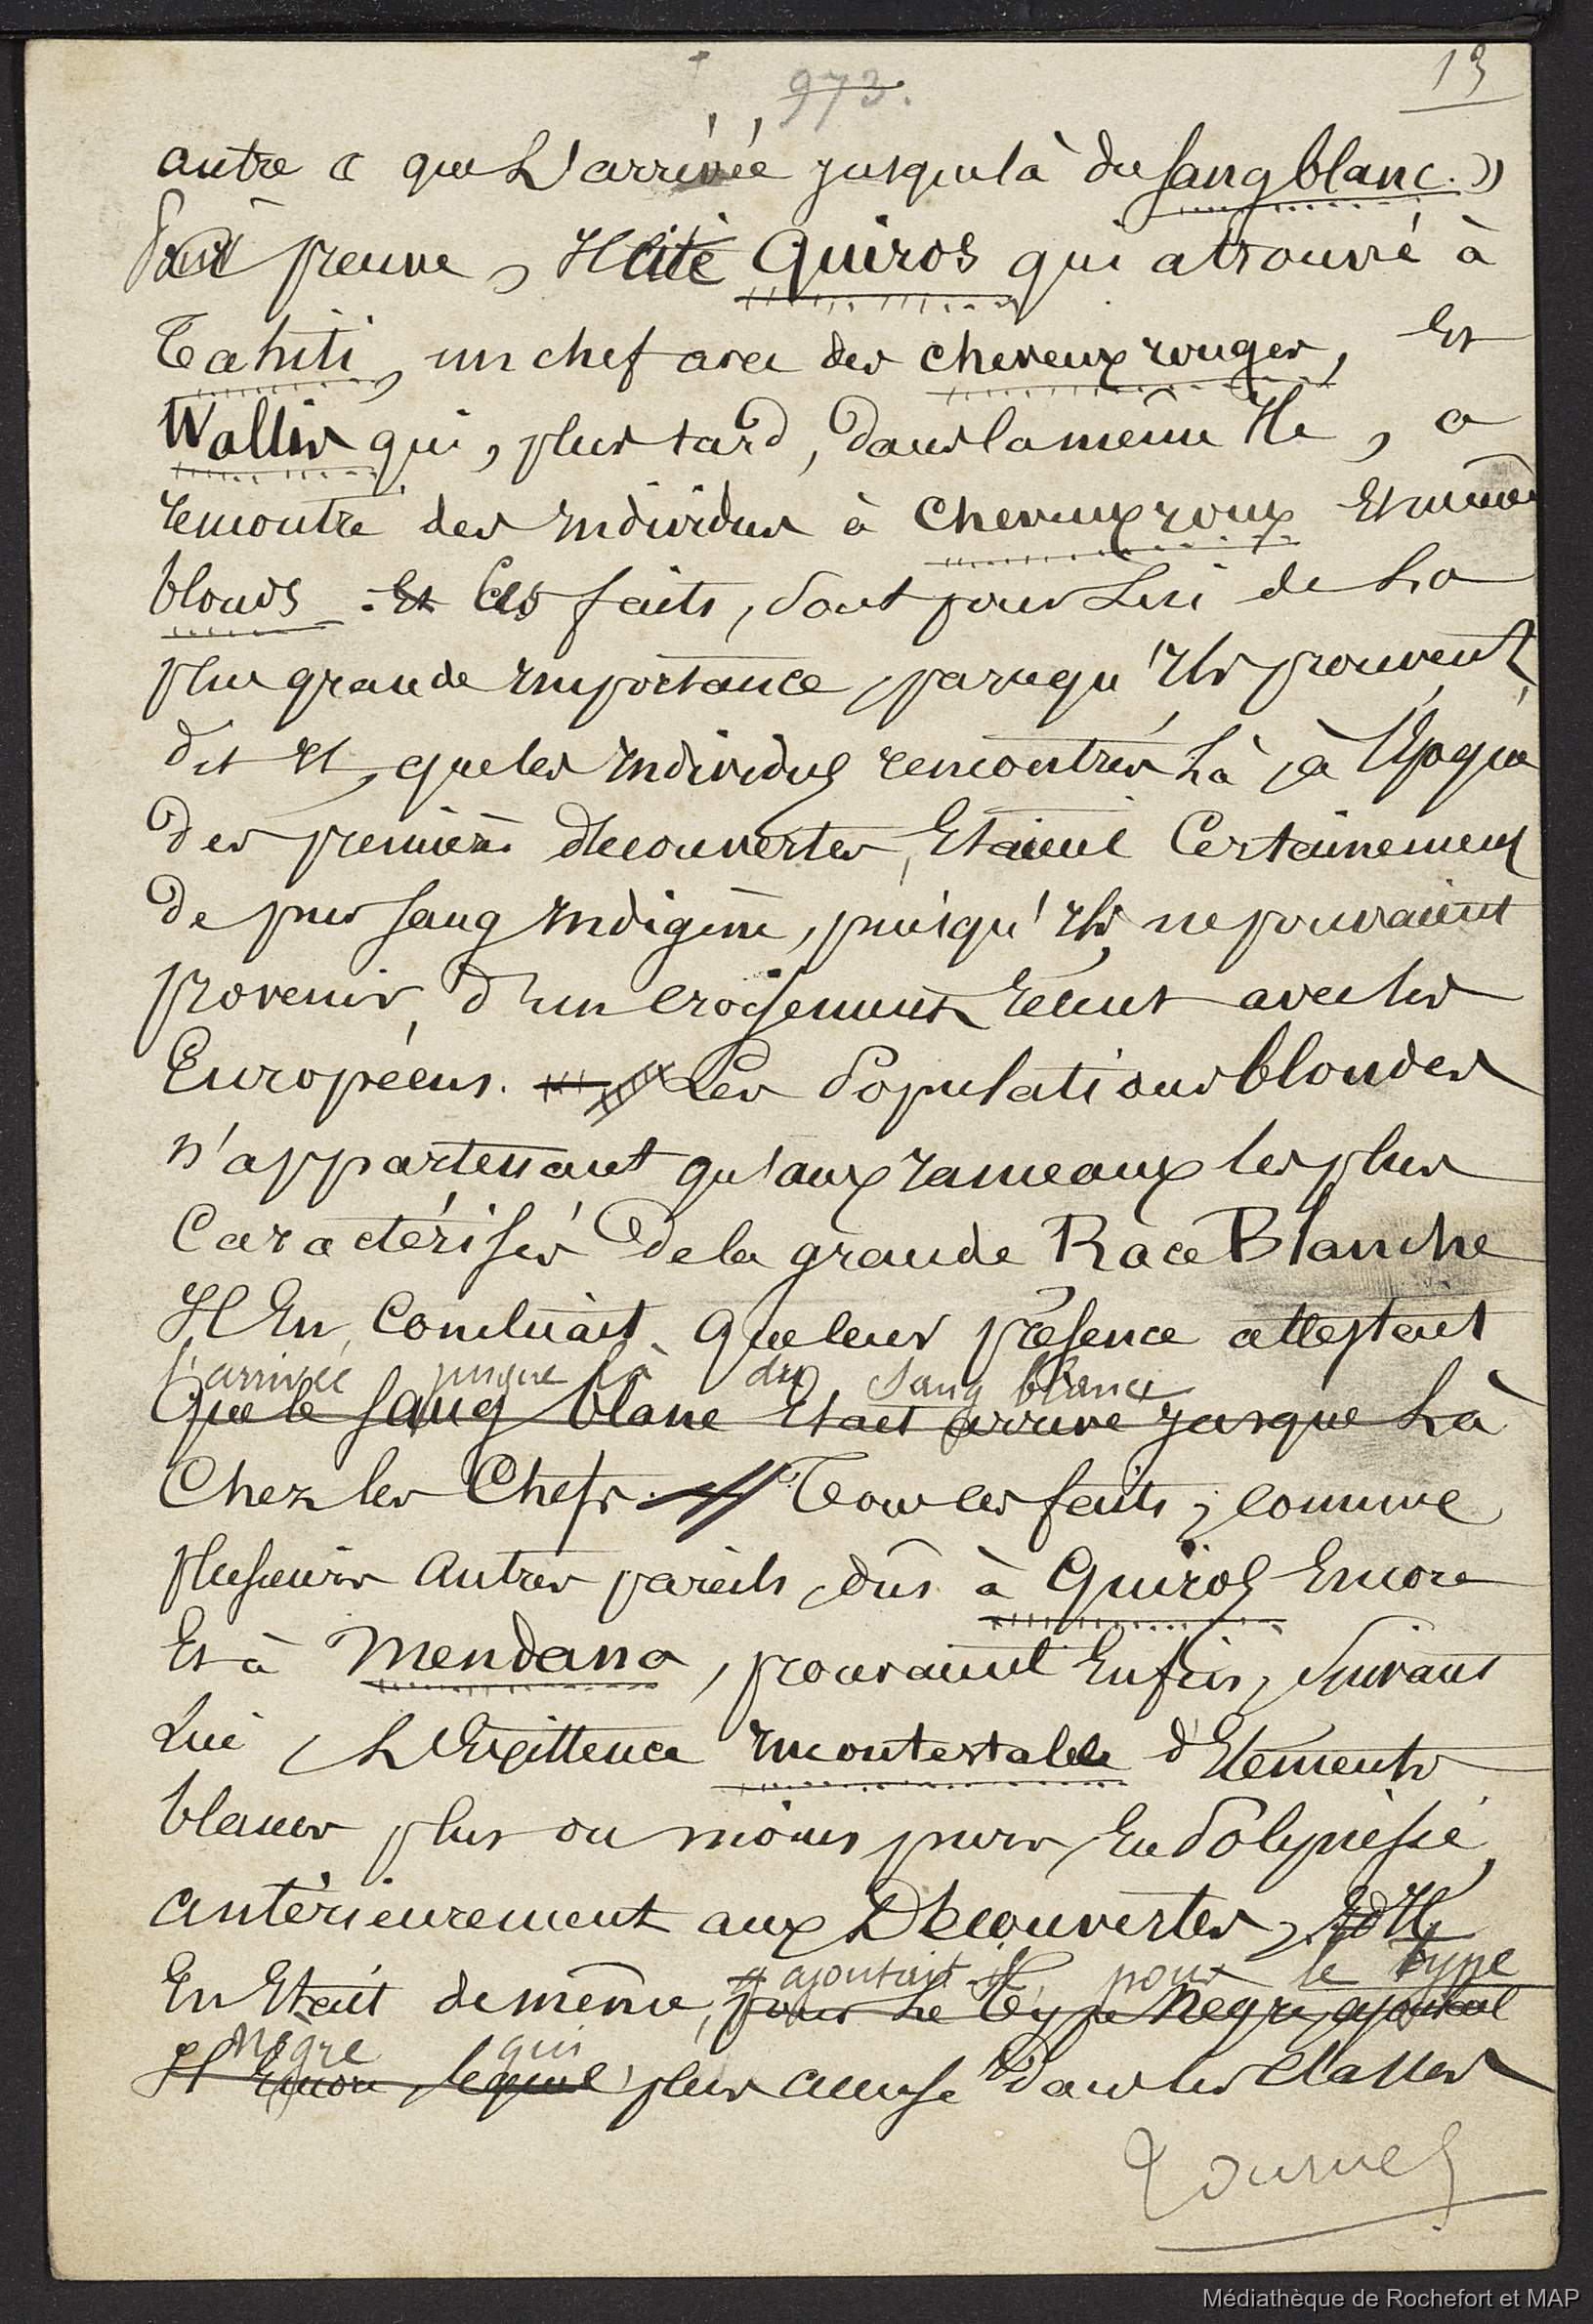 973.
13
autre a que L'arrivée jusque là du sang blanc. »
Pour preuve, Il cite Quiros qui a trouvé à
Tahiti, un chef avec des cheveux rouges, Et
Wallis qui, plus tard, dans la même Ile, a
rencontré des individus à cheveux roux Et même
blonds. Et Ces faits, sont pour Lui de La
plus grande importance, parcequ'ils prouvent,
dit il, que les individus rencontrés Là, à l'Epoque
des premières découvertes, Etaient Certainement
de pur sang indigène, puisqu'ils ne pouvaient
provenir, d'un croisement récent avec les
Européens. Les Populations blondes
n'appartenant qu'aux rameaux les plus
Caractérisés de la grande Race Blanche
Il En Concluait que leur présence attestait
l'arrivée jusque là du sang blanc
Que le sang blanc Etait arrivé jusque Là
Chez les Chefs. Tous ces faits, comme
plusieurs Autres pareils, dûs à Quiros Encore
Et à Mendana, prouvaient Enfin, Suivant
Lui, L'Existence incontestable d'Eléments
blancs plus ou moins purs, En Polynésie,
antérieurement aux Découvertes, Il
ajoutait-il, pour le type
En Etait de même, pour Le Type Nègre, ajoutait
nègre qui
Il Encore, lequel plus accusé Dans les classes
Tournez
Médiathèque de Rochefort et MAP